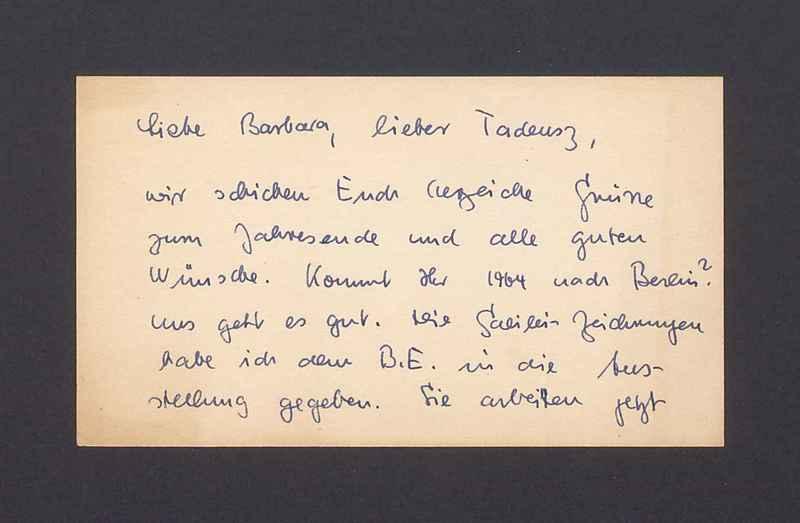 Liebe Barbara, lieber Tadeusz,
wir schicken Euch herzliche Grüsse
zum Jahresende und alle guten
Wünsche. Kommt Ihr 1964 nach Berlin?
Uns geht es gut. Die Galilei-Zeichnungen
habe ich dem B.E. in die Aus-
stellung gegeben. Sie arbeiten jetzt